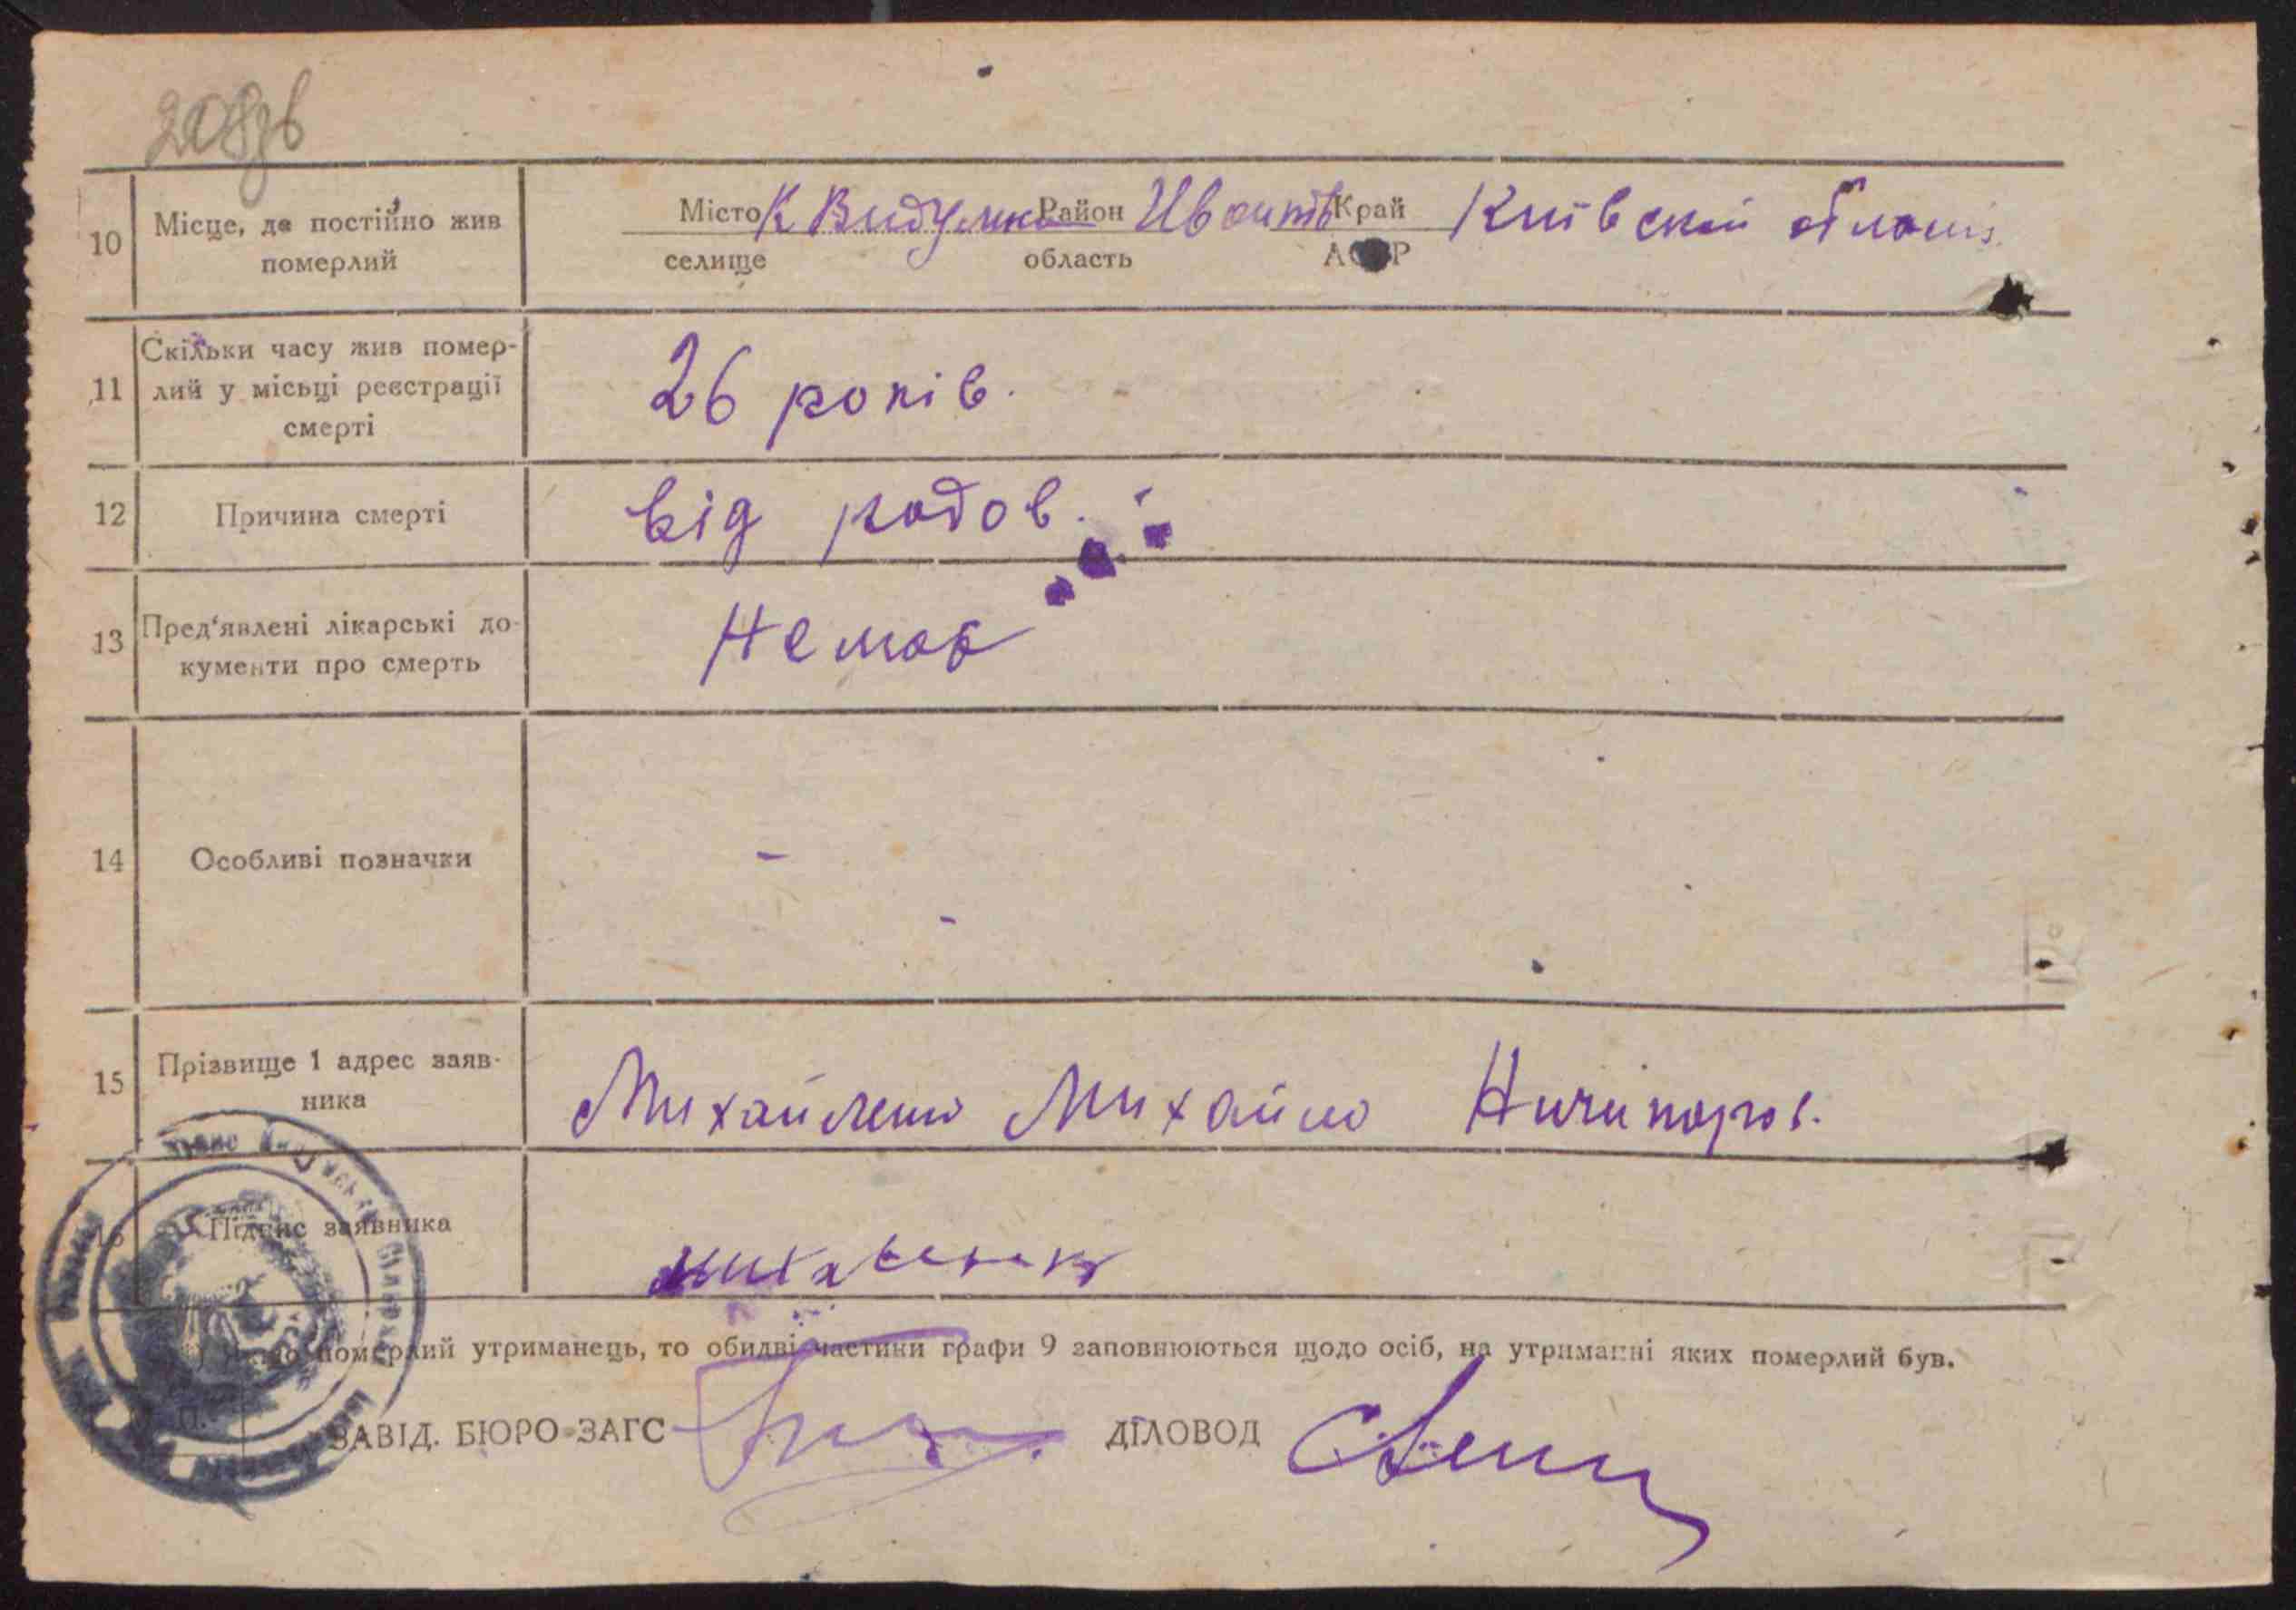 10 Місце, де постійно жив померлий
Місто К Видумка Район Край Київскої області
селище область АСРР
11 Скільки часу жив помер-
лий у місьці реєстрації
смерті
26 років.
12 Причина смерті
від родов.
13 Пред'явлені лікарські до-
кументи про смерть
Немає
14 Особливі позначки
-
15 Прізвище 1 адрес заяв-
ника
Михайленко Михайло Ничипоров.
16 Підпис заявника
померлий утриманець, то обидві частини графи 9 заповнюються щодо осіб, на утриманні яких померлий був.
М. П.
ЗАВІД. БЮРО-ЗАГС ДІЛОВОД